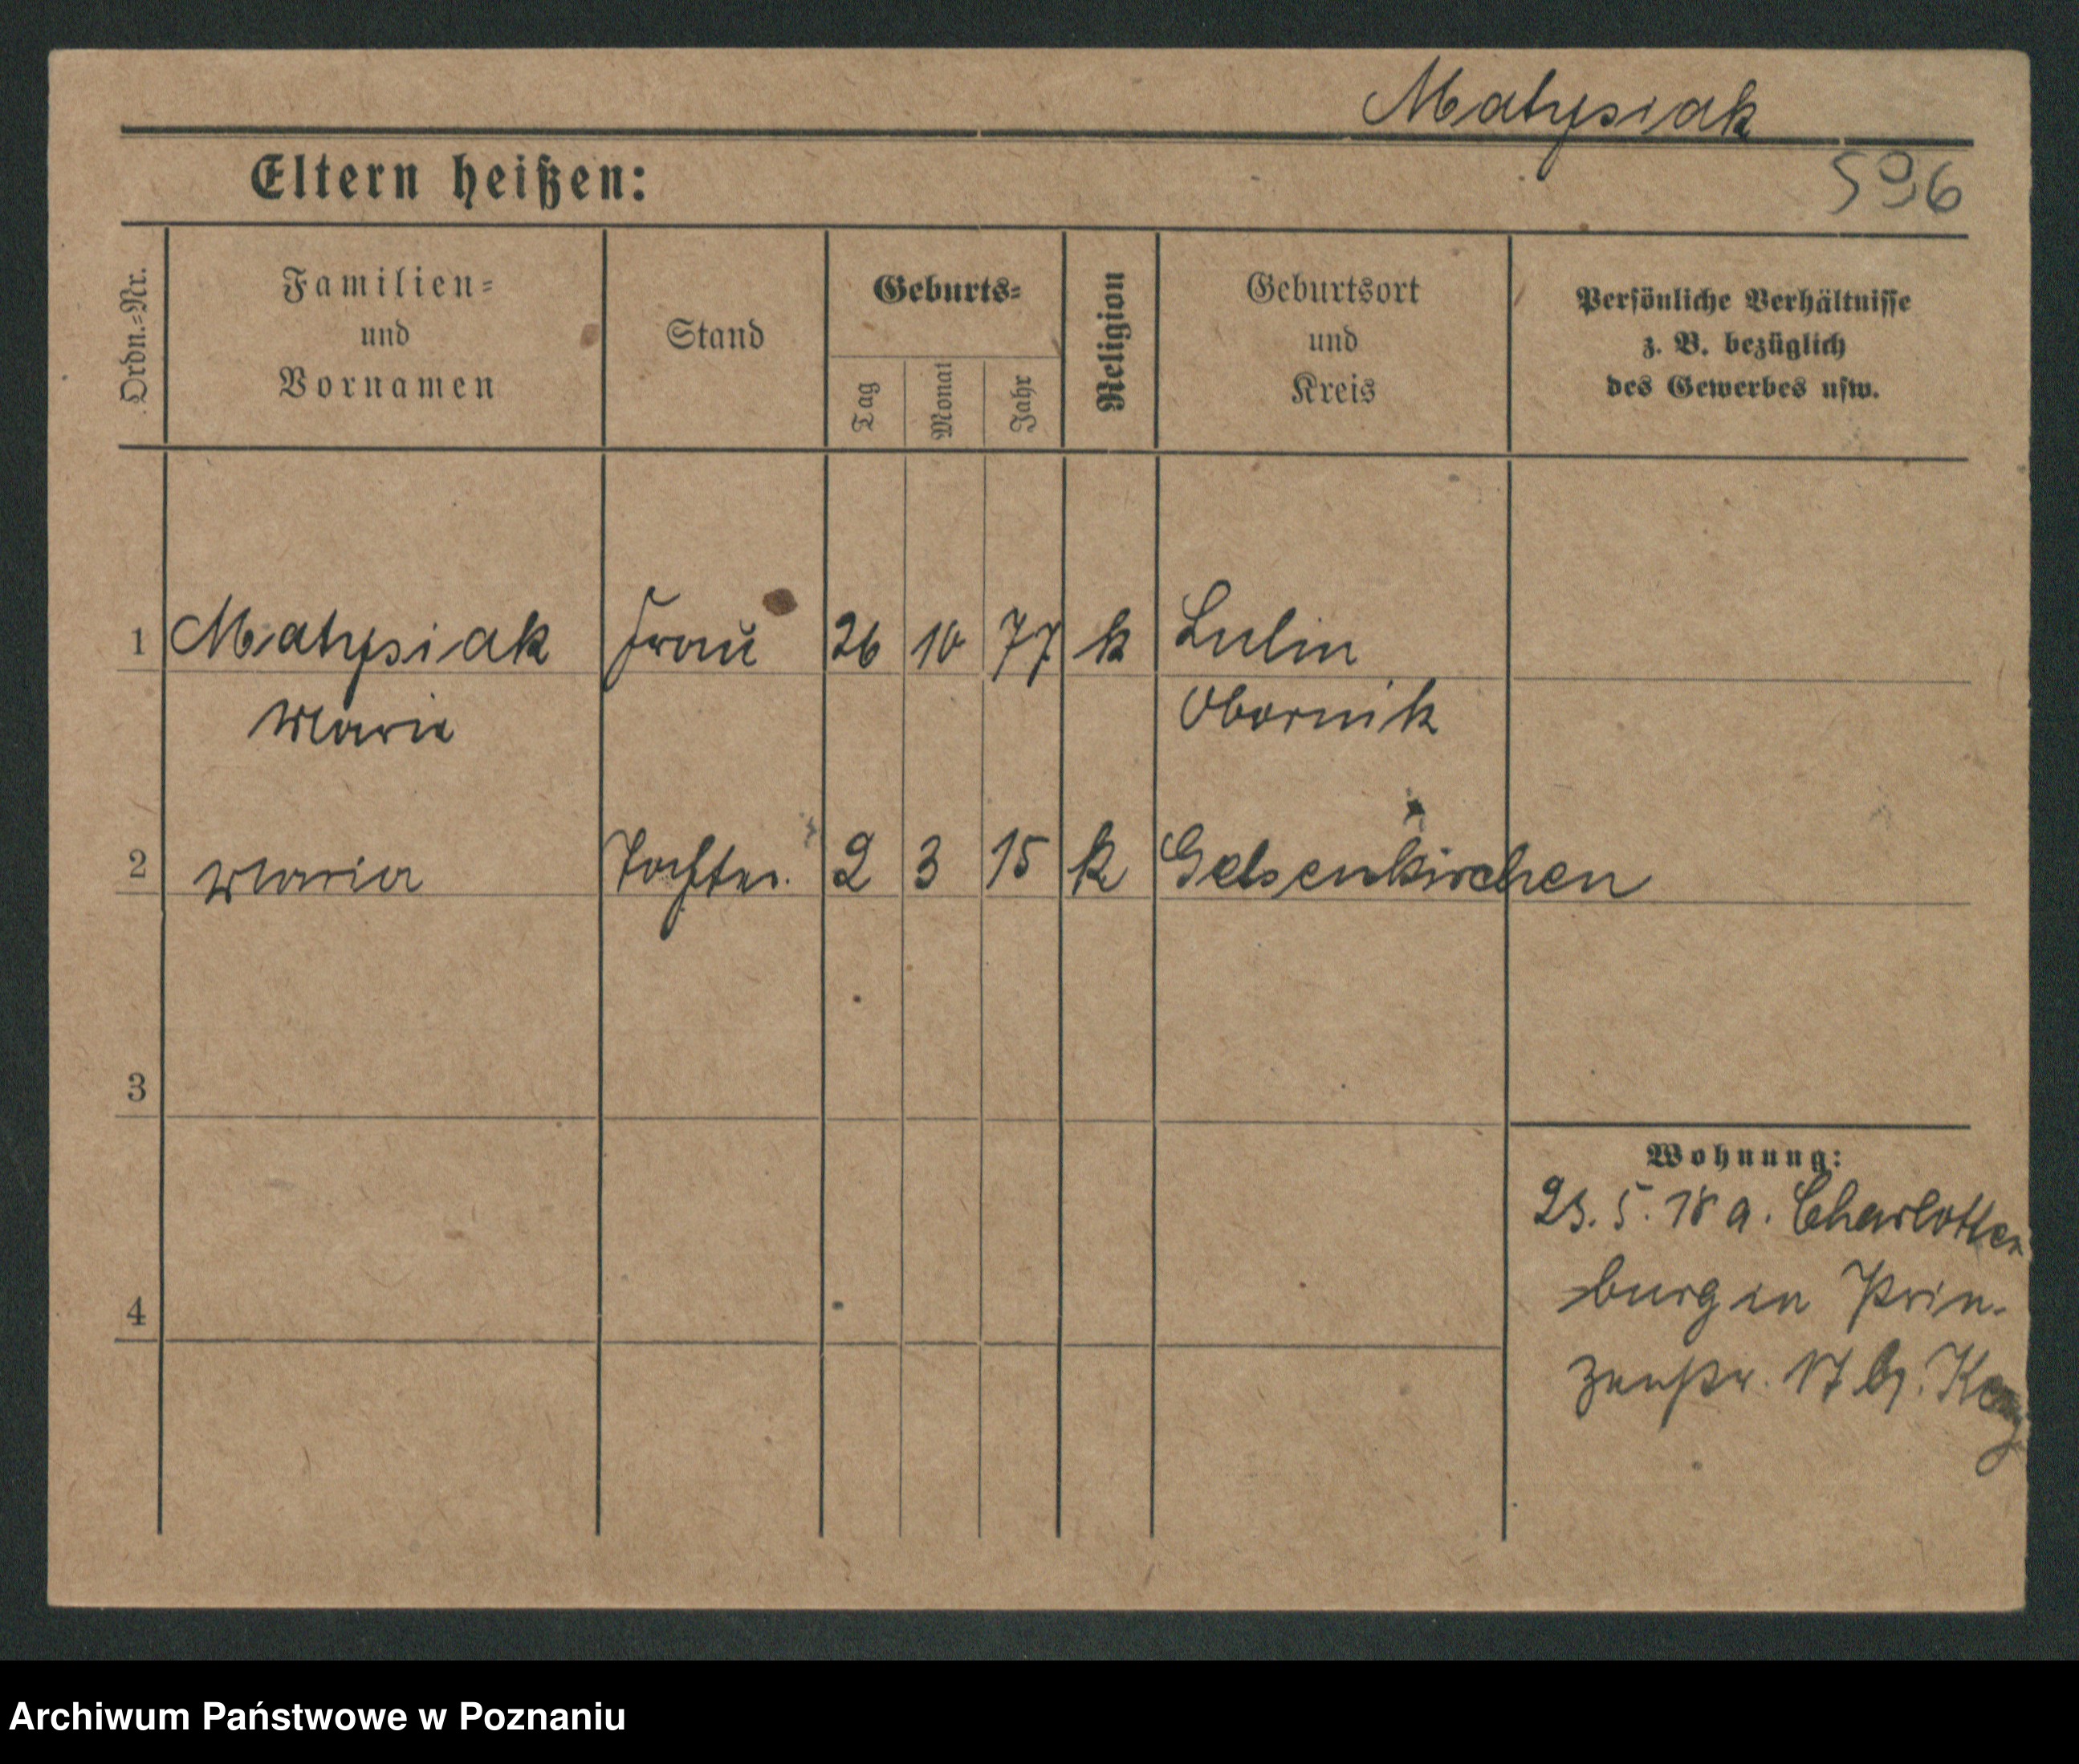 Matysiak
Eltern heißen:
596
Ordn.=Nr.
Familien=
und
Vornamen
Stand
Geburts=
Tag
Monat
Jahr
Religion
Geburtsort
und
Kreis
Persönliche Verhältnisse
z. B. bezüglich
des Gewerbes usw.
1 Matysiak Frau 26 10 77 k Lulin
Marie Obornik
2 Maria Tochter. 2 3 15 k Gelsenkirchen
3
Wohnung:
23. 5. 18 a. Charlotten
burg in Prin-
4
zenstr. 17 b.
Archiwum Państwowe w Poznaniu